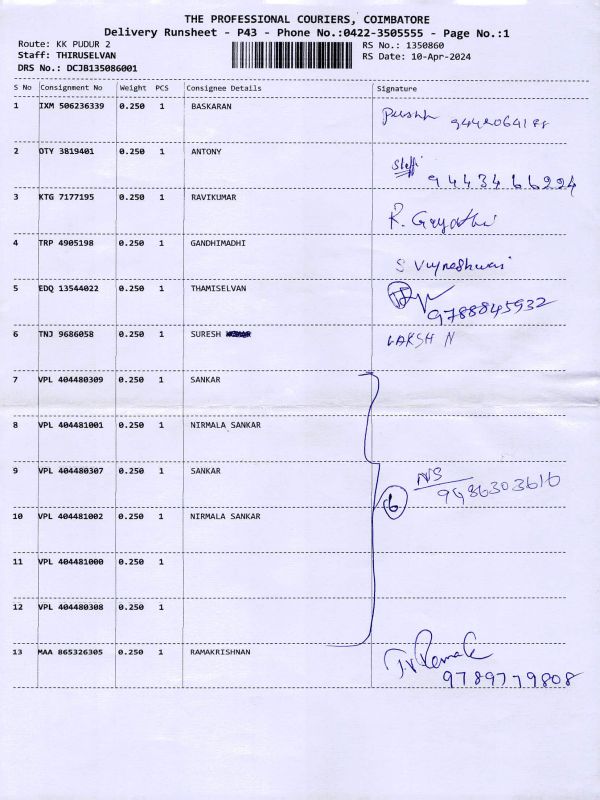 THE PROFESSIONAL COURIERS, COIMBATORE
Delivery Runsheet - P43 - Phone No.:0422-3505555 - Page No.:1
Route: KK PUDUR 2
RS No.: 1350860
Staff: THIRUSELVAN
RS Date: 10-Apr-2024
DRS No.: DCJB135086001
S No Consignment No Weight PCS Consignee Details Signature
1 IXM 506236339 0.250 1 BASKARAN
2 OTY 3819401 0.250 1 ANTONY
9443466224
3 KTG 7177195 0.250 1 RAVIKUMAR
R. Gayathri
4 TRP 4905198 0.250 1 GANDHIMADHI
5 EDQ 13544022 0.250 1 THAMISELVAN
9788845932
6 TNJ 9686058 0.250 1 SURESH
LAKSH N
7 VPL 404480309 0.250 1 SANKAR
8 VPL 404481001 0.250 1 NIRMALA SANKAR
9 VPL 404480307 0.250 1 SANKAR
NS
6
10 VPL 404481002 0.250 1 NIRMALA SANKAR
11 VPL 404481000 0.250 1
12 VPL 404480308 0.250 1
13 MAA 865326305 0.250 1 RAMAKRISHNAN
9789779808